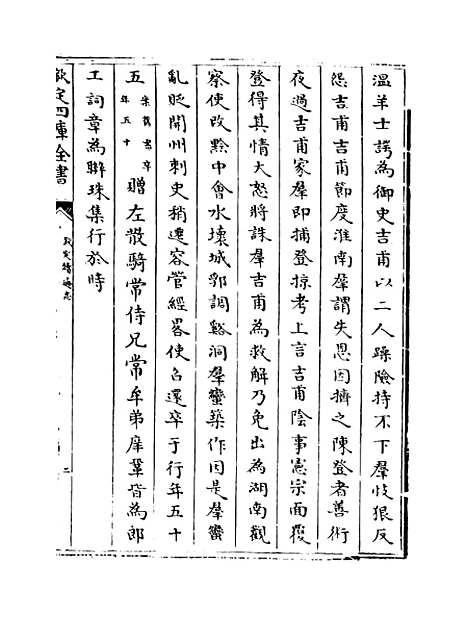 溫羊士諤為御史吉甫以二人躁險持不下羣忮狠反
怨吉甫吉甫節度淮南羣謂失恩因擠之陳登者善術
夜過吉甫家羣即捕登掠考上言吉甫陰事憲宗面覆
登得其情大怒將誅羣吉甫為救解乃免出為湖南觀
察使改黔中會水壞城郭調谿洞羣蠻築作因是羣蠻
亂貶開州刺史稍遷容管經畧使召還卒于行年五十
五宋舊書卒年五十贈左散騎常侍兄常牟弟庠鞏皆為郎
工詞章為聯珠集行於時
欽定四庫全書
欽定續通志
二